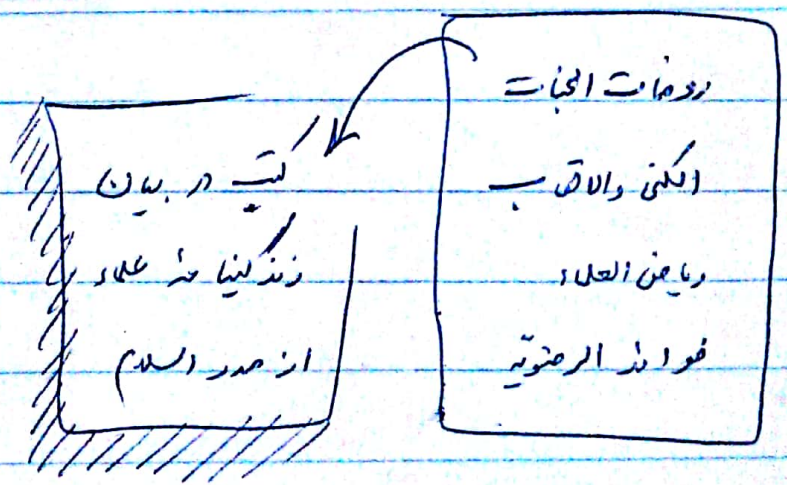 روضات الجنات
الکنی والالقاب
ریاض العلماء
فوائد الرضویه
کتب در بیان
زندگینامه علماء
از صدر اسلام